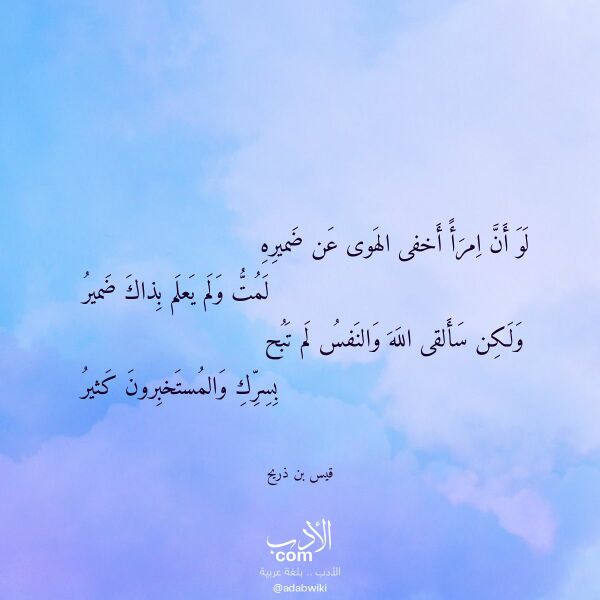 لَوَ أَنَّ اِمرَأً أَخفى الهَوى عَن ضَميرِهِ
لَمُتُّ وَلَم يَعلَم بِذاكَ ضَميرُ
وَلَكِن سَأَلقى اللَهَ وَالنَفسُ لَم تَبُح
بِسِرِّكِ وَالمُستَخبِرونَ كَثيرُ
قيس بن ذريح
الأدب
com
الأدب .. بلغة عربية
@adabwiki